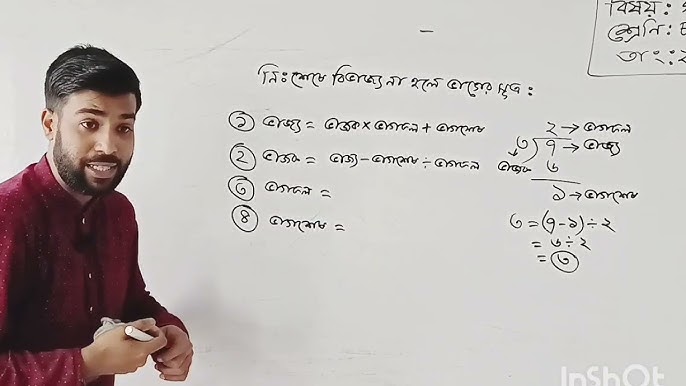 বিষয়:
শ্রেণি:
তাং:
নিঃশেষে বিভাজ্য না হলে ভাগের সূত্র :
① ভাজ্য = ভাজক × ভাগফল + ভাগশেষ
② ভাজক = ভাজ্য - ভাগশেষ ÷ ভাগফল
③ ভাগফল =
④ ভাগশেষ =
২ → ভাগফল
৩) ৭ → ভাজ্য
ভাজক ৬
১ → ভাগশেষ
৩ = (৭-১) ÷ ২
= ৬ ÷ ২
= ৩
InShOt